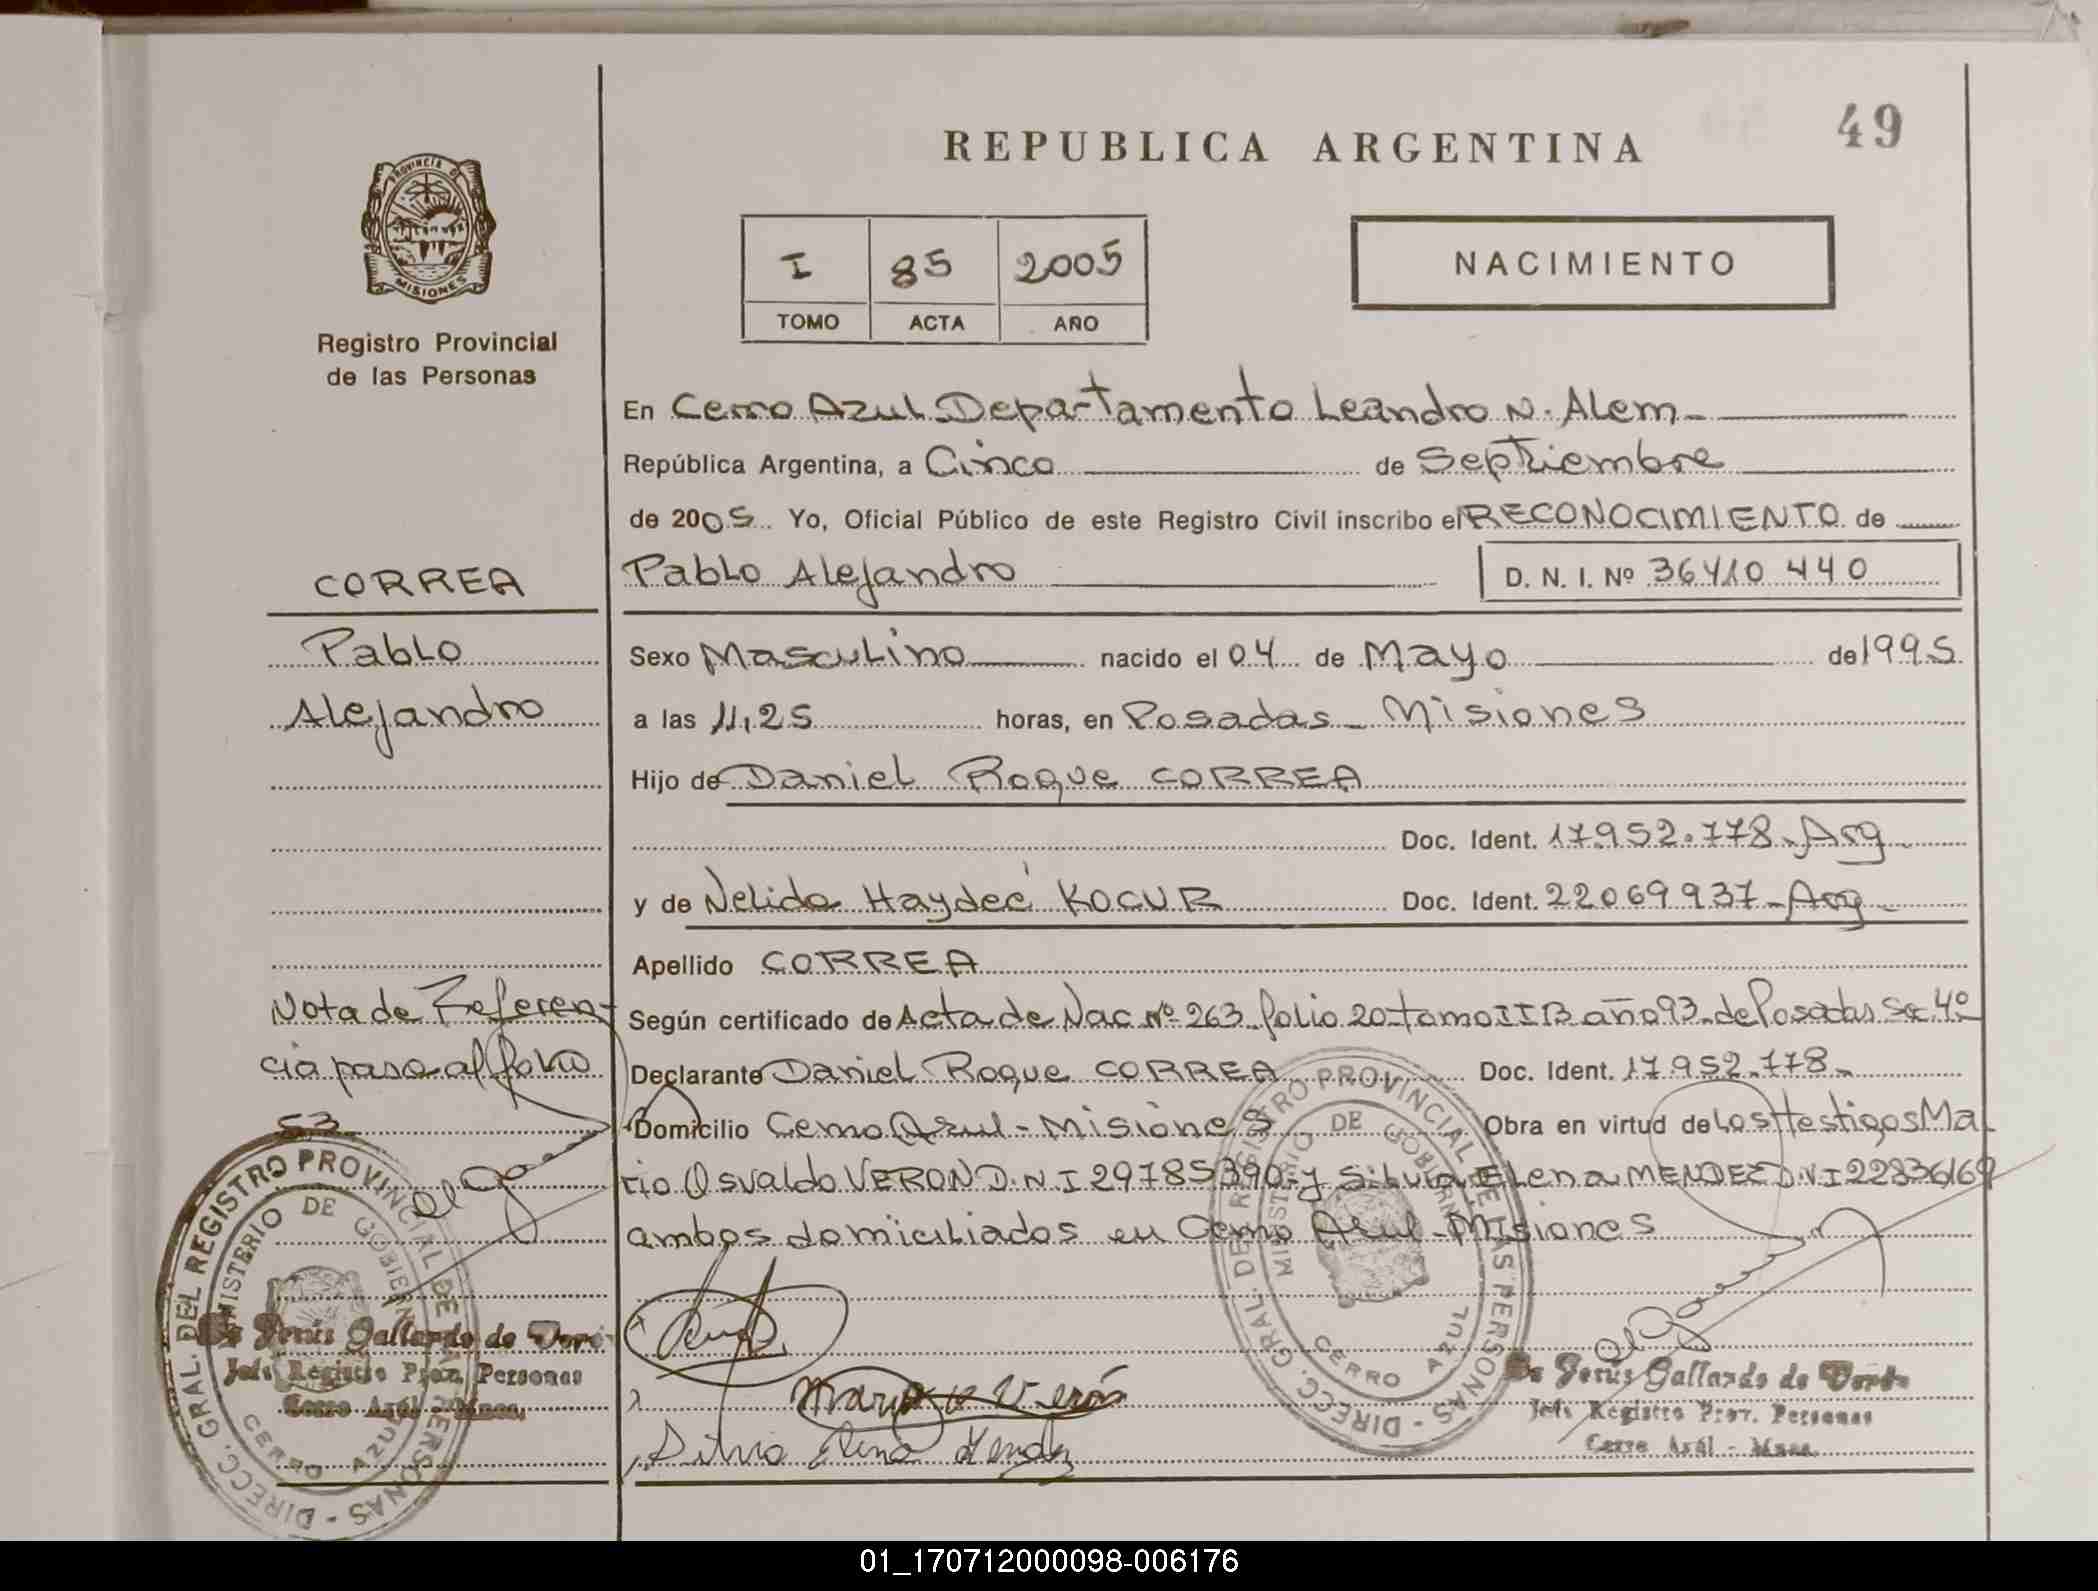 49
REPUBLICA ARGENTINA
PROVINCIA DE
MISIONES
Registro Provincial
de las Personas
I 85 2005
TOMO ACTA AÑO
NACIMIENTO
En Cerro Azul Departamento Leandro N. Alem
República Argentina, a Cinco de Septiembre
de 2005 Yo, Oficial Público de este Registro Civil inscribo el RECONOCIMIENTO de
CORREA
Pablo Alejandro
D. N. I. Nº 36410 440
Pablo
Alejandro
Sexo Masculino nacido el 04 de Mayo de 1995
a las 11,25 horas, en Posadas - Misiones
Hijo de Daniel Roque CORREA
Doc. Ident. 17.952.778 - Arg
y de Nelida Haydeé KOCUR Doc. Ident. 22069937 - Arg
Apellido CORREA
Nota de Referen-
cia pasa al folio
53
Según certificado de Acta de Nac Nº 263 folio 20 tomo II B año 93 de Posadas Sec 4º
Declarante Daniel Roque CORREA Doc. Ident. 17.952.778-
Domicilio Cerro Azul - Misiones Obra en virtud de Los testigos Ma
rio Osvaldo VERON D.N I 29785390 y Silvia Elena MENDEZ D.N I 22336169
ambos domiciliados en Cerro Azul - Misiones
DIRECC. GRAL. DEL REGISTRO PROVINCIAL DE LAS PERSONAS
MINISTERIO DE GOBIERNO
CERRO AZUL
Jesús Gallardo de
Jefe Registro Prov. Personas
Cerro Azul - Mnes.
Mario O Verón
Silvia Elena Mendez
DIRECC. GRAL. DEL REGISTRO PROVINCIAL DE LAS PERSONAS
MINISTERIO DE GOBIERNO
CERRO AZUL
Jesús Gallardo de
Jefe Registro Prov. Personas
Cerro Azul - Mnes.
01_170712000098-006176